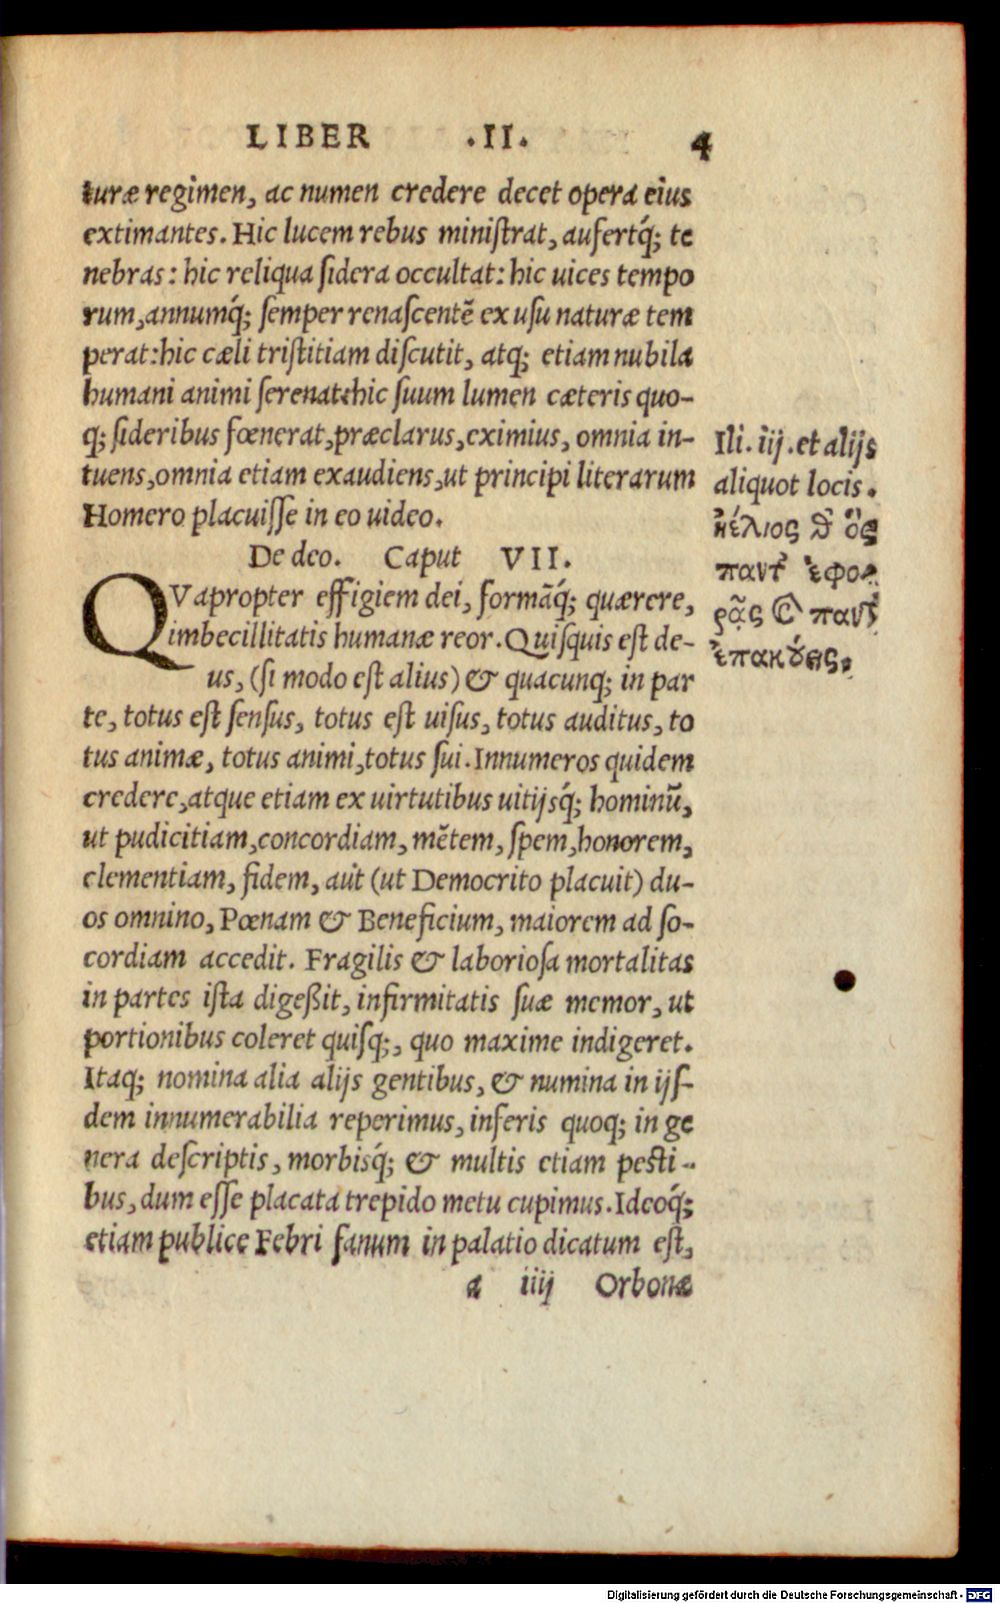 LIBER .II. 4
turæ regimen, ac numen credere decet opera eius
extimantes. Hic lucem rebus miniſtrat, aufertq́; te
nebras: hic reliqua ſidera occultat: hic uices tempo
rum, annumq́; ſemper renaſcentē ex uſu naturæ tem
perat: hic cæli triſtitiam diſcutit, atq; etiam nubila
humani animi ſerenat: hic ſuum lumen cæteris quo-
q; ſideribus fœnerat, præclarus, eximius, omnia in-
tuens, omnia etiam exaudiens, ut principi literarum
Homero placuiſſe in eo uideo.
De deo. Caput VII.
QVapropter effigiem dei, formāq́; quærere,
imbecillitatis humanæ reor. Quiſquis eſt de-
us, (ſi modo eſt alius) & quacunq; in par
te, totus eſt ſenſus, totus eſt uiſus, totus auditus, to
tus animæ, totus animi, totus ſui. Innumeros quidem
credere, atque etiam ex uirtutibus uitijsq́; hominū,
ut pudicitiam, concordiam, mētem, ſpem, honorem,
clementiam, fidem, aut (ut Democrito placuit) du-
os omnino, Pœnam & Beneficium, maiorem ad ſo-
cordiam accedit. Fragilis & laborioſa mortalitas
in partes iſta digeßit, infirmitatis ſuæ memor, ut
portionibus coleret quiſq;, quo maxime indigeret.
Itaq; nomina alia alijs gentibus, & numina in ijſ-
dem innumerabilia reperimus, inferis quoq; in ge
nera deſcriptis, morbisq́; & multis etiam peſti-
bus, dum eſſe placata trepido metu cupimus. Ideoq́;
etiam publice Febri fanum in palatio dicatum eſt,
a iiij Orbonæ
Ili. iij. et alijs
aliquot locis.
ἠέλιος θ' ὃς
παντ' ἐφο-
ρᾷς καὶ παντ'
ἐπακούεις.
Digitalisierung gefördert durch die Deutsche Forschungsgemeinschaft - DFG